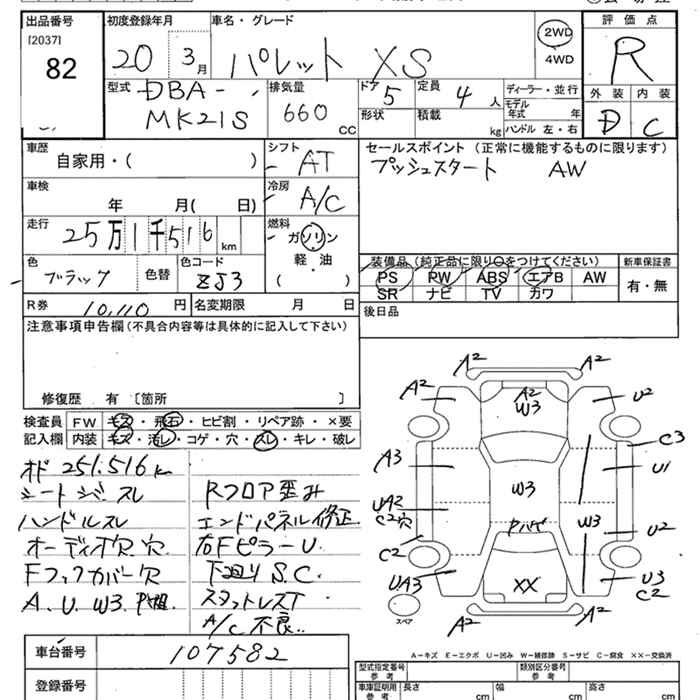 出品番号
[2037]
82
初度登録年月
20 3月
車名・グレード
パレット XS
2WD
4WD
評価点
R
外装 内装
D C
型式
DBA-
MK21S
排気量
660 cc
ドア 5
形状
定員 4 人
積載 kg
ディーラー・並行
モデル年式 年
ハンドル 左・右
車歴
自家用・( )
シフト
AT
車検
年 月( 日)
冷房
A/C
走行
25万1千516 km
燃料
ガソリン
軽・油
( )
色
ブラック
色替
色コード
ZJ3
R券 10,110 円
名変期限 月 日
セールスポイント (正常に機能するものに限ります)
プッシュスタート AW
装備品(純正品に限り○をつけてください)
PS PW ABS エアB AW
SR ナビ TV カワ
新車保証書
有・無
後日品
注意事項申告欄(不具合内容等は具体的に記入して下さい)
修復歴 有 〔箇所 〕
検査員
記入欄
FW キズ・飛石・ヒビ割・リペア跡・×要
内装 キズ・汚レ・コゲ・穴・スレ・キレ・破レ
オド 251,516km
シートシミスレ
ハンドルスレ
オーディオ欠 穴
Fフックカバー欠
A、U、W3、P粗
Rフロア歪み
エンドパネル修正
右FピラーU
下廻りS.C.
スタットレスT
A/C不良
A2 A2
A2 A2 U2
W3
C3
A3 U1
W3
UA2
C2穴 W3 U2
Pハゲ
C2
UA3 XX U3
C2
スペア
A2 A2
A-キズ E-エクボ U-凹み W-補修跡 S-サビ C-腐食 XX-交換済
車台番号 107582
登録番号
型式指定番号
参考
類別区分番号
参考
車庫証明用
参考
長さ cm
幅 cm
高さ cm